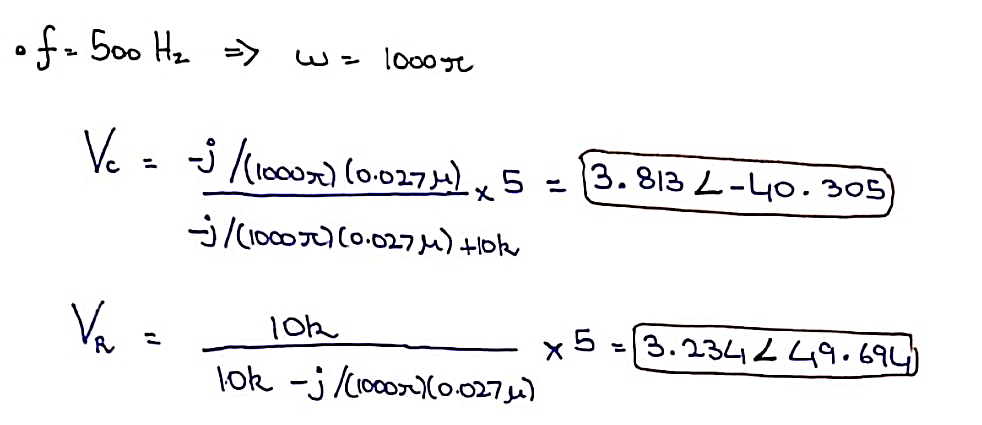 • f = 500 Hz ⇒ ω = 1000π
Vc = -j/(1000π)(0.027μ) / -j/(1000π)(0.027μ)+10k × 5 = 3.813∠-40.305
VR = 10k / 10k -j/(1000π)(0.027μ) × 5 = 3.234∠49.694